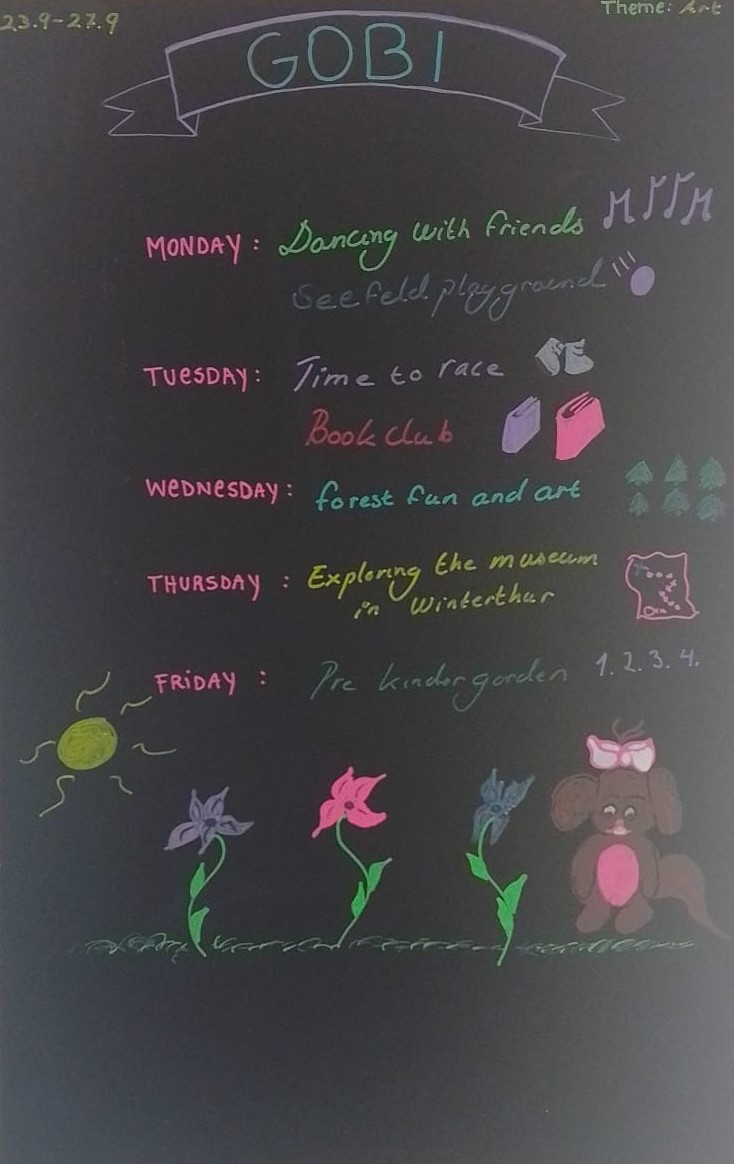 23.9-27.9
Theme: Art
GOBI
MONDAY: Dancing with friends
Seefeld playground
TUESDAY: Time to race
Book club
WEDNESDAY: forest fun and art
THURSDAY: Exploring the museum
in Winterthur
FRIDAY: Pre kindergarden 1. 2. 3. 4.